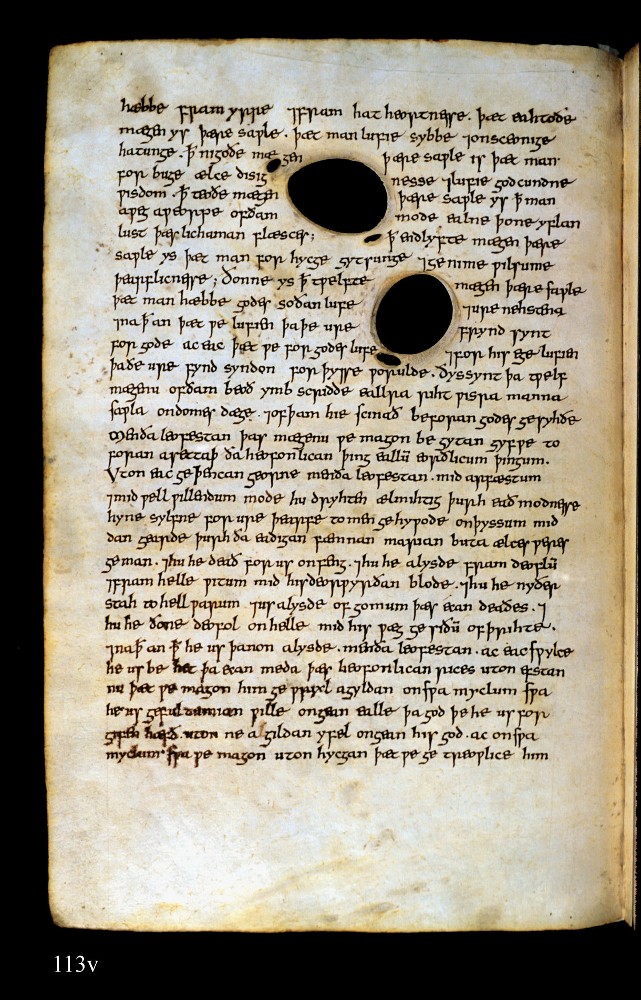 hæbbe fram yrre ⁊fram hatheortnesse. þæt eahtoðe
mægen ys þære saple. þæt man lufie sybbe ⁊onscunige
hatunge. ꝥ nigoðe mægen þære saple is þæt man
for buge ælce disignesse ⁊lufie godcundne
ƿisdom. ꝥ teoðe mægen þære saple ys ꝥ man
aƿeg aƿeorpe of ðam mode ealne þone yflan
lust þæs lichaman flæsces; ꝥ endlyfte mægen þære
saple ys þæt man for hycge gytsunge ⁊ge nime ƿilsume
þearflicnesse; ðonne ys ꝥ tƿelfte mægen þære saƿle
þæt man hæbbe godes soðan lufe ⁊ure nehstena
⁊naꝥ an þæt ƿe lufien þa þe ure frynd synt
for gode ac eac þæt ƿe for godes lufe ⁊for his ege lufien
þa ðe ure fynd syndon for þysse ƿorulde. ðyssynt þa tƿelf
mægenu of ðam beoð ymb scridde ealra riht ƿisra manna
saƿla on domes dæge. ⁊of þam hie scinað beforan godes gesyhðe
Menða leofestan þas mægenu ƿe magon be gytan gyf ƿe to
foran asettaþ ða heofonlican þing eallū eorðlicum þingum.
Vton eac ge þencan georne menða leofestan. mid arfæstum
⁊mid ƿell ƿillendum mode hu dryhten ælmihtig þurh eaðmodnesse
hyne sylfne for ure þearfe to men gehyƿode on þyssum mid
dan gearde þurh ða eadigan fæmnan marian butan ælces ƿeres
geman. ⁊hu he deað for us onfeng. ⁊hu he alysde fram deoflū
⁊fram helle ƿitum mid his deorƿyrðan blode. ⁊hu he nyðer
stah to hell ƿarum. ⁊us alysde of gomum þæs ecan deaðes. ⁊
hu he ðone deofol on helle mid his
⁊naꝥ an ꝥ he us þanon alysde. menða leofestan. ac eac sƿylce
he us be het þa ecan meda þæs heofonlican rices uton efstan
nu þæt ƿe magon him ge ƿrixl agyldan on sƿa myclum sƿa
he us gefultumian ƿille ongean ealle þa god þe he us for
gifen hæfð. uton ne a gildan yfel ongean his god. ac on sƿa
myclum sƿa ƿe magon uton hycgan þæt ƿe ge treoƿlice him
113v